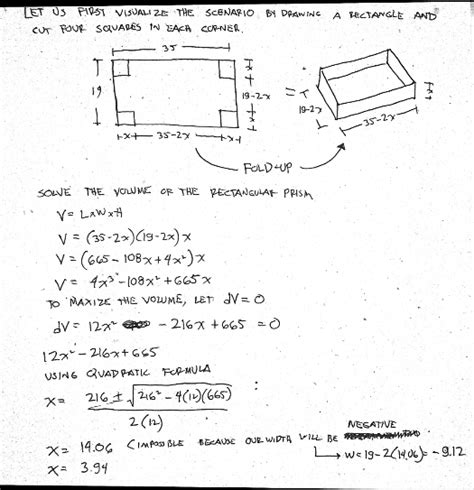 LET US FIRST VISUALIZE THE SCENARIO BY DRAWING A RECTANGLE AND
CUT FOUR SQUARES IN EACH CORNER.
35
19
x
19-2x
x
x 35-2x x
=
x
19-2x
35-2x
FOLD-UP
SOLVE THE VOLUME OF THE RECTANGULAR PRISM
V = LxWxH
V = (35-2x)(19-2x)x
V = (665 - 108x + 4x²)x
V = 4x³ - 108x² + 665x
TO MAXIZE THE VOLUME, LET dV = 0
dV = 12x² - 216x + 665 = 0
12x² - 216x + 665
USING QUADRATIC FORMULA
x = 216 ± √216² - 4(12)(665)
2(12)
x = 14.06 (IMPOSSIBLE BECAUSE OUR WIDTH WILL BE NEGATIVE
W = 19 - 2(14.06) = -9.12
x = 3.94